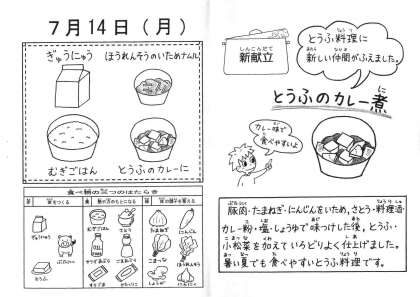 7月14日（月）
ぎゅうにゅう
ほうれんそうのいためナムル
むぎごはん
とうふのカレーに
食べ物の三つのはたらき
ぎゅうにゅう
ぶたにく
とうふ
むぎごはん
さとう
たまねぎ
にんじん
こまつな
しんこんだて
新献立
とうふ料理に
新しい仲間がふえました。
とうふのカレー煮
カレー味で
食べやすいよ
豚肉・たまねぎ・にんじんをいため、さとう・料理酒・
カレー粉・塩・しょうゆで味つけした後、とうふ・
小松菜を加えていろどりよく仕上げました。
暑い夏でも食べやすいとうふ料理です。